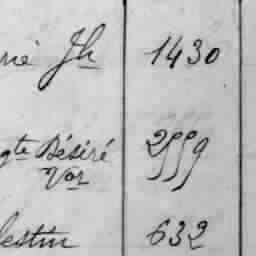 rie Jh 1430
gte Désiré 2559
Vor
lestin 632